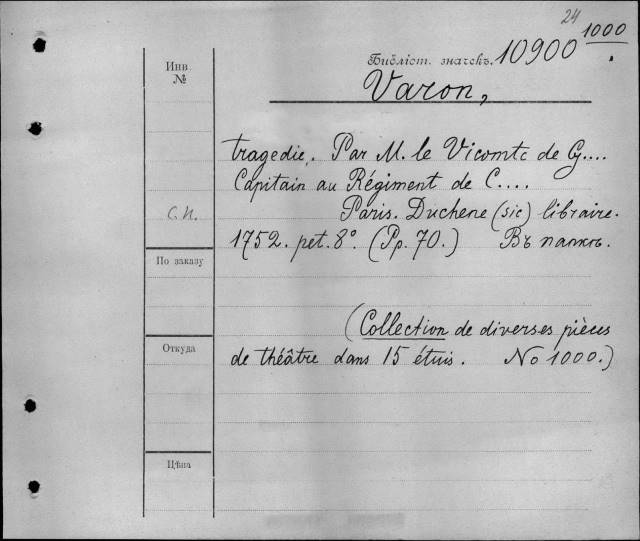 24
1000
Инв. №
Библіот. значекъ. 10900
Varon,
tragedie. Par M. le Vicomte de G....
Capitain au Régiment de C....
С.П. Paris. Duchene (sic) libraire.
1752. pet. 8°. (Pp. 70.) Въ папкѣ.
По заказу
(Collection de diverses pièces
Откуда
de théâtre dans 15 étuis. No 1000.)
Цѣна